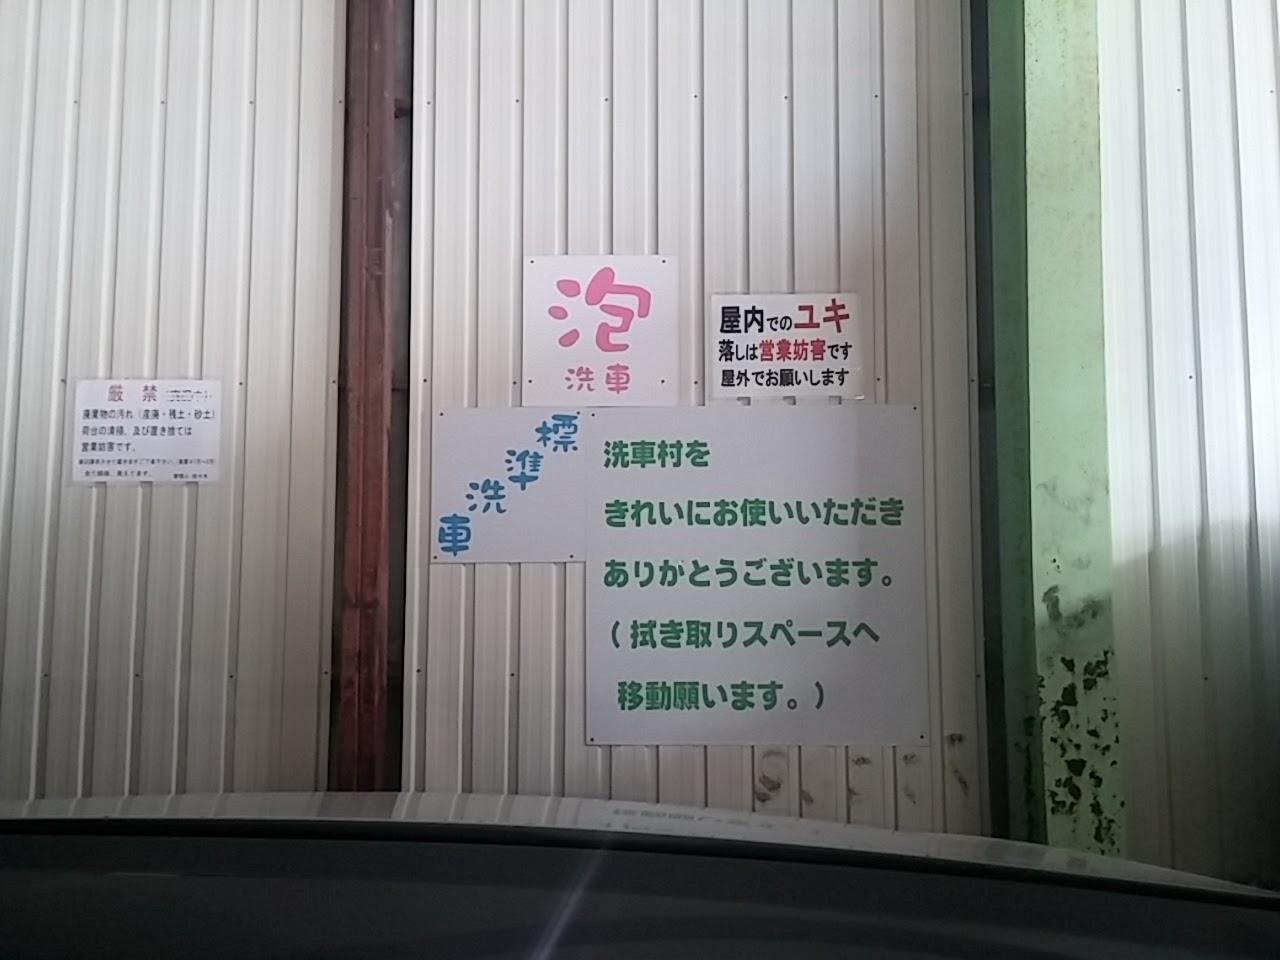 厳禁
廃棄物の汚れ（産廃・残土・砂土）
荷台の清掃、及び置き捨ては
営業妨害です。
泡
洗車
屋内でのユキ
落しは営業妨害です
屋外でお願いします
標準洗車
洗車村を
きれいにお使いいただき
ありがとうございます。
（拭き取りスペースへ
移動願います。）